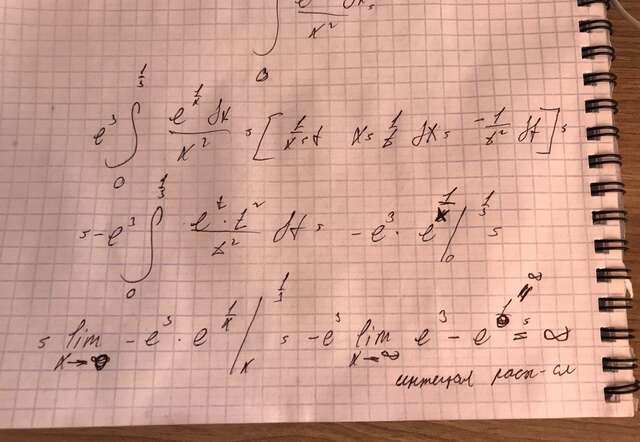 ∫ e dx = x² 0
e³ ∫₀^{1/3} e^{1/x} dx / x² = [ 1/x = t x = 1/t dx = -1/t² dt ] =
= -e³ ∫₀^{1/3} e^t · t² / t² dt = -e³ · e^{1/x} |₀^{1/3} =
= lim x→0 -e³ · e^{1/x} |ₓ^{1/3} = -e³ lim x→∞ e³ - e^{1/0} = ∞
интеграл расх-ся